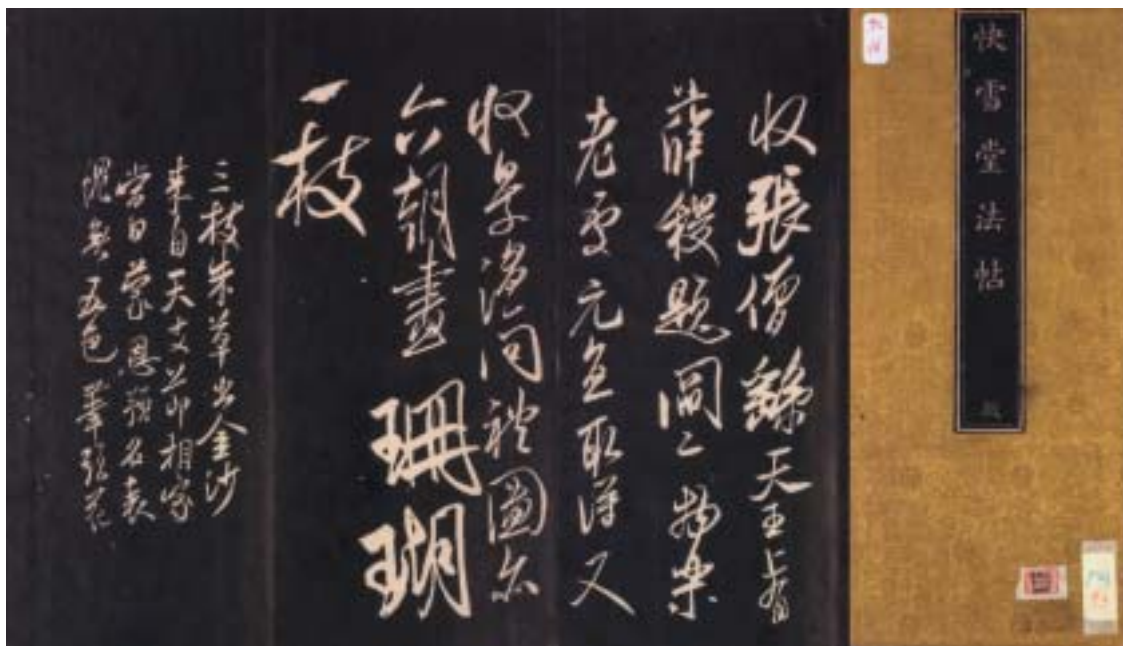 快雪堂法帖
收張僧繇天王上有
薛稷題閻二物樂
老處元直取得又
收景溫問禮圖亦
六朝畫珊瑚
一枝
三枝朱草出金沙
來自天支節相家
當日蒙恩預名表
愧無五色筆頭花